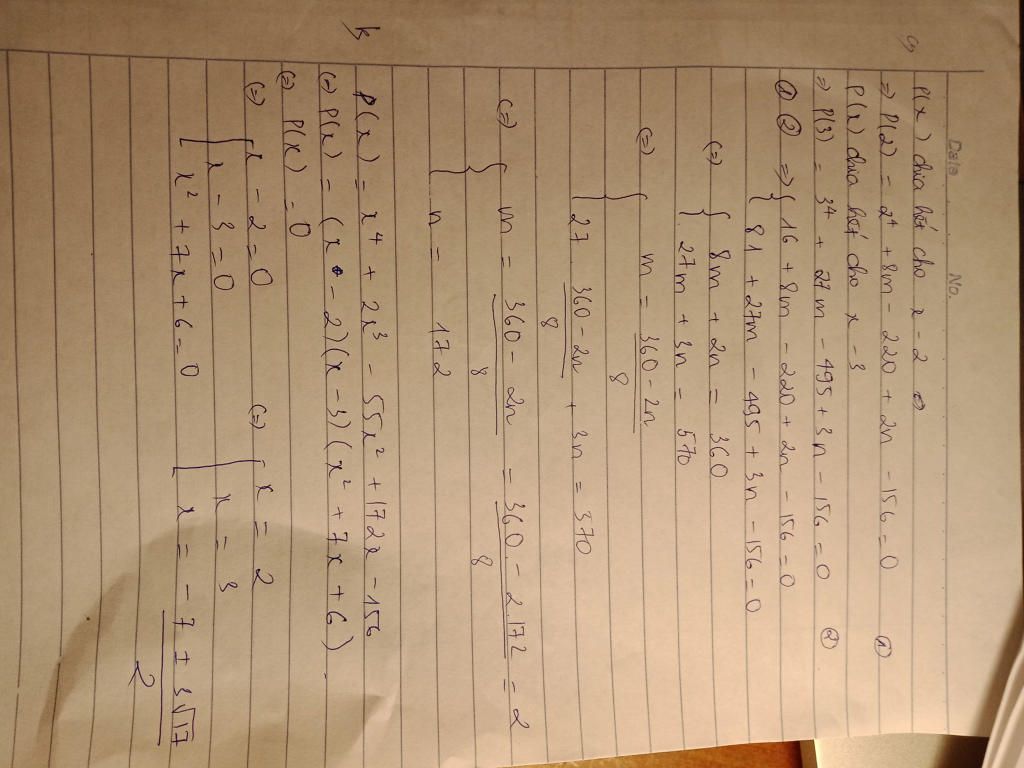 Date No.
a)
P(x) chia hết cho x - 2
=> P(2) = 2⁴ + 8m - 220 + 2n - 156 = 0 (1)
P(x) chia hết cho x - 3
=> P(3) = 3⁴ + 27m - 495 + 3n - 156 = 0 (2)
(1) (2) => { 16 + 8m - 220 + 2n - 156 = 0
81 + 27m - 495 + 3n - 156 = 0
(=) { 8m + 2n = 360
27m + 3n = 570
(=) { m = (360 - 2n)/8
27 . (360 - 2n)/8 + 3n = 370
(=) { m = (360 - 2n)/8 = (360 - 2.172)/8 = 2
n = 172
P(x) = x⁴ + 2x³ - 55x² + 172x - 156
(=) P(x) = (x - 2)(x - 3)(x² + 7x + 6).
(=) P(x) = 0
(=) [ x - 2 = 0 (=) [ x = 2
x - 3 = 0 x = 3
x² + 7x + 6 = 0 x = (-7 ± 3√17)/2